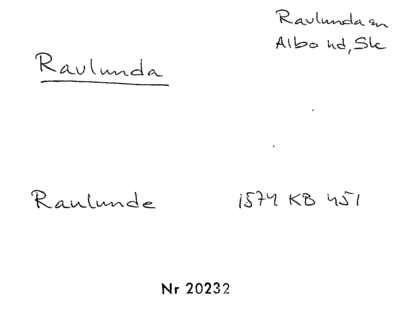 Ravlunda sn
Albo hd, Sk
Ravlunda
Raulunde 1574 KB 451
Nr 20232